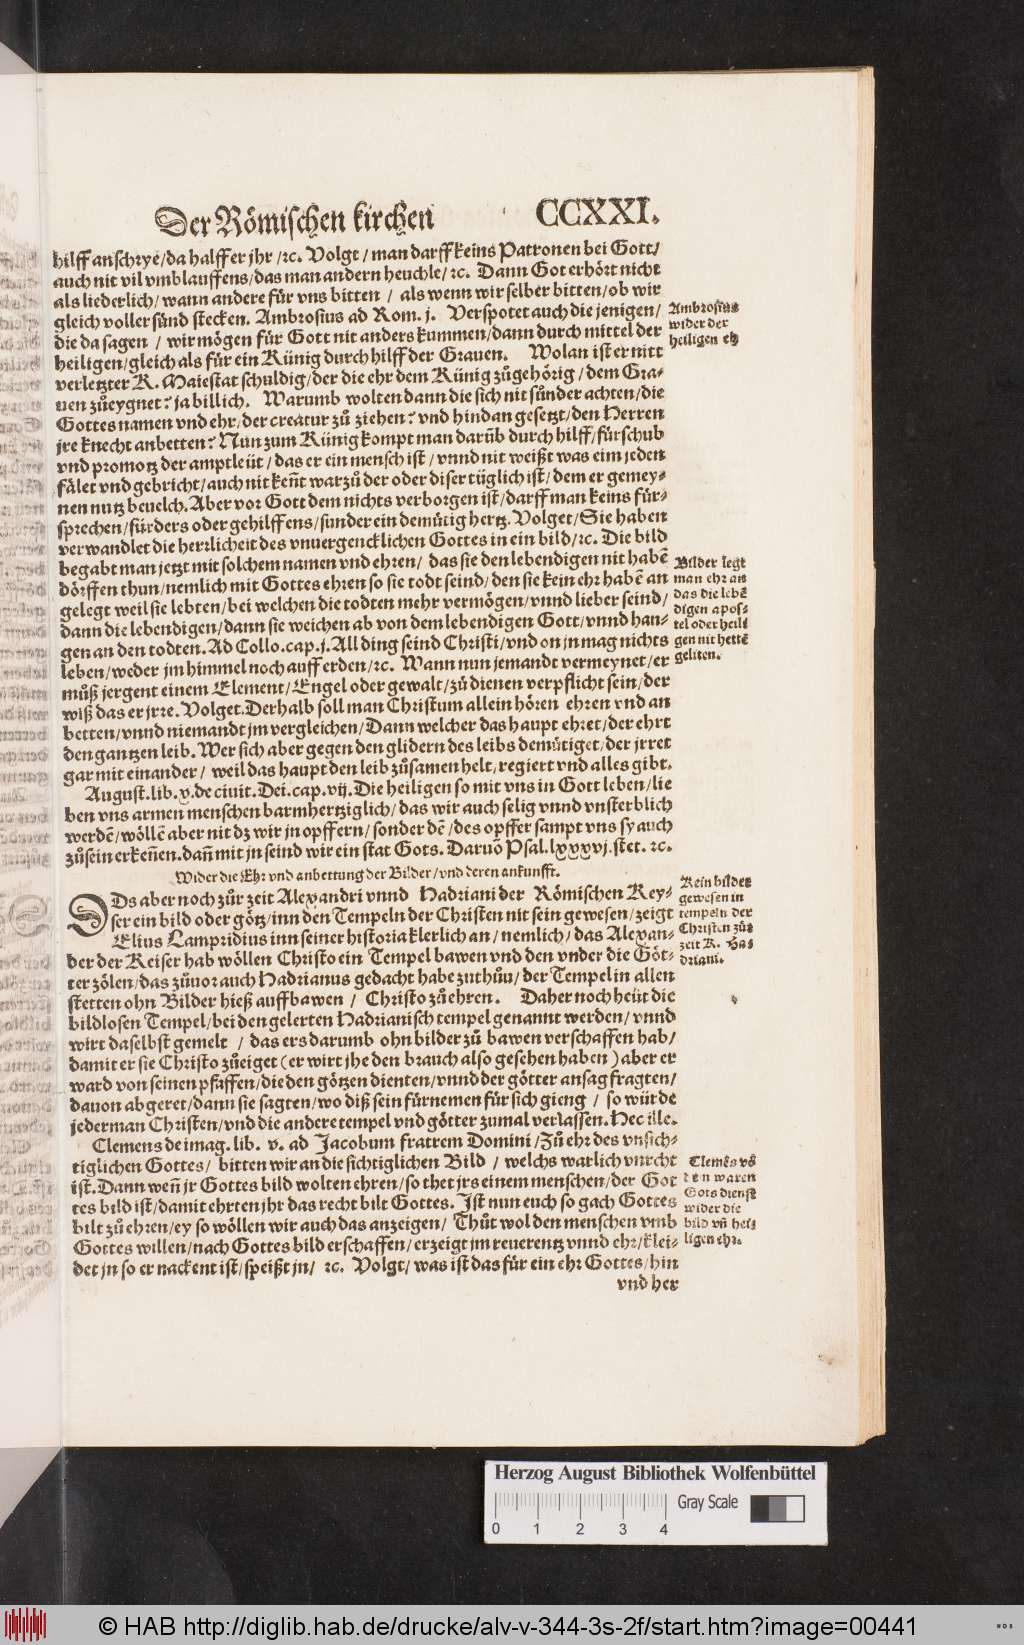 Der Römischen kirchen CCXXI.
hilff anschrye/da halff er jhr/ꝛc. Volgt/man darff keins Patronen bei Gott/
auch nit vil vmblauffens/das man andern heuchle/ꝛc. Dann Got erhört nicht
als liederlich/wann andere für vns bitten/als wenn wir selber bitten/ob wir
gleich voller sünd stecken. Ambrosius ad Rom. j. Verspotet auch die jenigen/
die da sagen/wir mögen für Gott nit anders kummen/dann durch mittel der
heiligen/gleich als für ein Künig durch hilff der Grauen. Wolan ist er nitt
verletzter K. Maiestat schuldig/der die ehr dem Künig zůgehörig/dem Gra-
uen zůeygnet? ja billich. Warumb wolten dann die sich nit sünder achten/die
Gottes namen vnd ehr/der creatur zů ziehen? vnd hindan gesetzt/den Herren
jre knecht anbetten? Nun zum Künig kompt man darüb durch hilff/fürschub
vnd promotz der amptleüt/das er ein mensch ist/vnnd nit weißt was eim jeden
fälet vnd gebricht/auch nit keñt warzů der oder diser tüglich ist/dem er gemey-
nen nutz beuelch. Aber vor Gott dem nichts verborgen ist/darff man keins für-
sprechen/fürders oder gehilffens/sunder ein demütig hertz. Volget/Sie haben
verwandlet die herrlicheit des vnuergencklichen Gottes in ein bild/ꝛc. Die bild
begabt man jetzt mit solchem namen vnd ehren/das sie den lebendigen nit habē
dörffen thun/nemlich mit Gottes ehren so sie todt seind/den sie kein ehr habē an
gelegt weil sie lebten/bei welchen die todten mehr vermögen/vnnd lieber seind/
dann die lebendigen/dann sie weichen ab von dem lebendigen Gott/vnnd han-
gen an den todten. Ad Collo. cap. j. All ding seind Christi/vnd on jn mag nichts
leben/weder jm himmel noch auff erden/ꝛc. Wann nun jemandt vermeynet/er
můß jergent einem Element/Engel oder gewalt/zů dienen verpflicht sein/der
wiß das er jrre. Volget. Derhalb soll man Christum allein hören ehren vnd an
betten/vnnd niemandt jm vergleichen/Dann welcher das haupt ehret/der ehrt
den gantzen leib. Wer sich aber gegen den glidern des leibs demütiget/der jrret
gar mit einander/weil das haupt den leib zůsamen helt/regiert vnd alles gibt.
August. lib. x. de ciuit. Dei. cap. vij. Die heiligen so mit vns in Gott leben/lie
ben vns armen menschen barmhertziglich/das wir auch selig vnnd vnsterblich
werdē/wöllē aber nit dz wir jn opffern/sonder dē/des opffer sampt vns sy auch
zůsein erkeñen. dañ mit jn seind wir ein stat Gots. Daruō Psal. lxxxvj. stet. ꝛc.
Wider die Ehr vnd anbettung der Bilder/vnd deren ankunfft.
DDs aber noch zůr zeit Alexandri vnnd Hadriani der Römischen Key-
ser ein bild oder götz/inn den Tempeln der Christen nit sein gewesen/zeigt
Elius Lampridius inn seiner historia klerlich an/nemlich/das Alexan-
der der Keiser hab wöllen Christo ein Tempel bawen vnd den vnder die Göt-
ter zölen/das zůuor auch Hadrianus gedacht habe zuthůn/der Tempel in allen
stetten ohn Bilder hieß auffbawen/Christo zů ehren. Daher noch heüt die
bildlosen Tempel/bei den gelerten Hadrianisch tempel genannt werden/vnnd
wirt daselbst gemelt/das ers darumb ohn bilder zů bawen verschaffen hab/
damit er sie Christo zůeiget (er wirt jhe den brauch also gesehen haben) aber er
ward von seinen pfaffen/die den götzen dienten/vnnd der götter ansag fragten/
dauon abgeret/dann sie sagten/wo diß sein fürnemen für sich gieng/so würde
jederman Christen/vnd die andere tempel vnd götter zumal verlassen. Hec ille.
Clemens de imag. lib. v. ad Jacobum fratrem Domini/Zů ehr des vnsich-
tiglichen Gottes/bitten wir an die sichtiglichen Bild/welchs warlich vnrcht
ist. Dann weñ jr Gottes bild wolten ehren/so thet jrs einem menschen/der Got
tes bild ist/damit ehrten jhr das recht bilt Gottes. Ist nun euch so gach Gottes
bilt zů ehren/ey so wöllen wir auch das anzeigen/Thůt wol den menschen vmb
Gottes willen/nach Gottes bild erschaffen/erzeigt jm reuerentz vnnd ehr/klei-
det jn so er nackent ist/speißt jn/ꝛc. Volgt/was ist das für ein ehr Gottes/hin
vnd her
Ambrosius
wider der
heiligen eh
Bilder legt
man ehr an
das die lebē
digen apos-
tel oder heili
gen nit hettē
geliten.
Kein bilder
gewesen in
tempeln der
Christen zůr
zeit K. Ha-
driani.
Clemēs vō
den waren
Gots dienst
wider die
bild vñ hei-
ligen ehr.
Herzog August Bibliothek Wolfenbüttel
Gray Scale
0 1 2 3 4
© HAB http://diglib.hab.de/drucke/alv-v-344-3s-2f/start.htm?image=00441